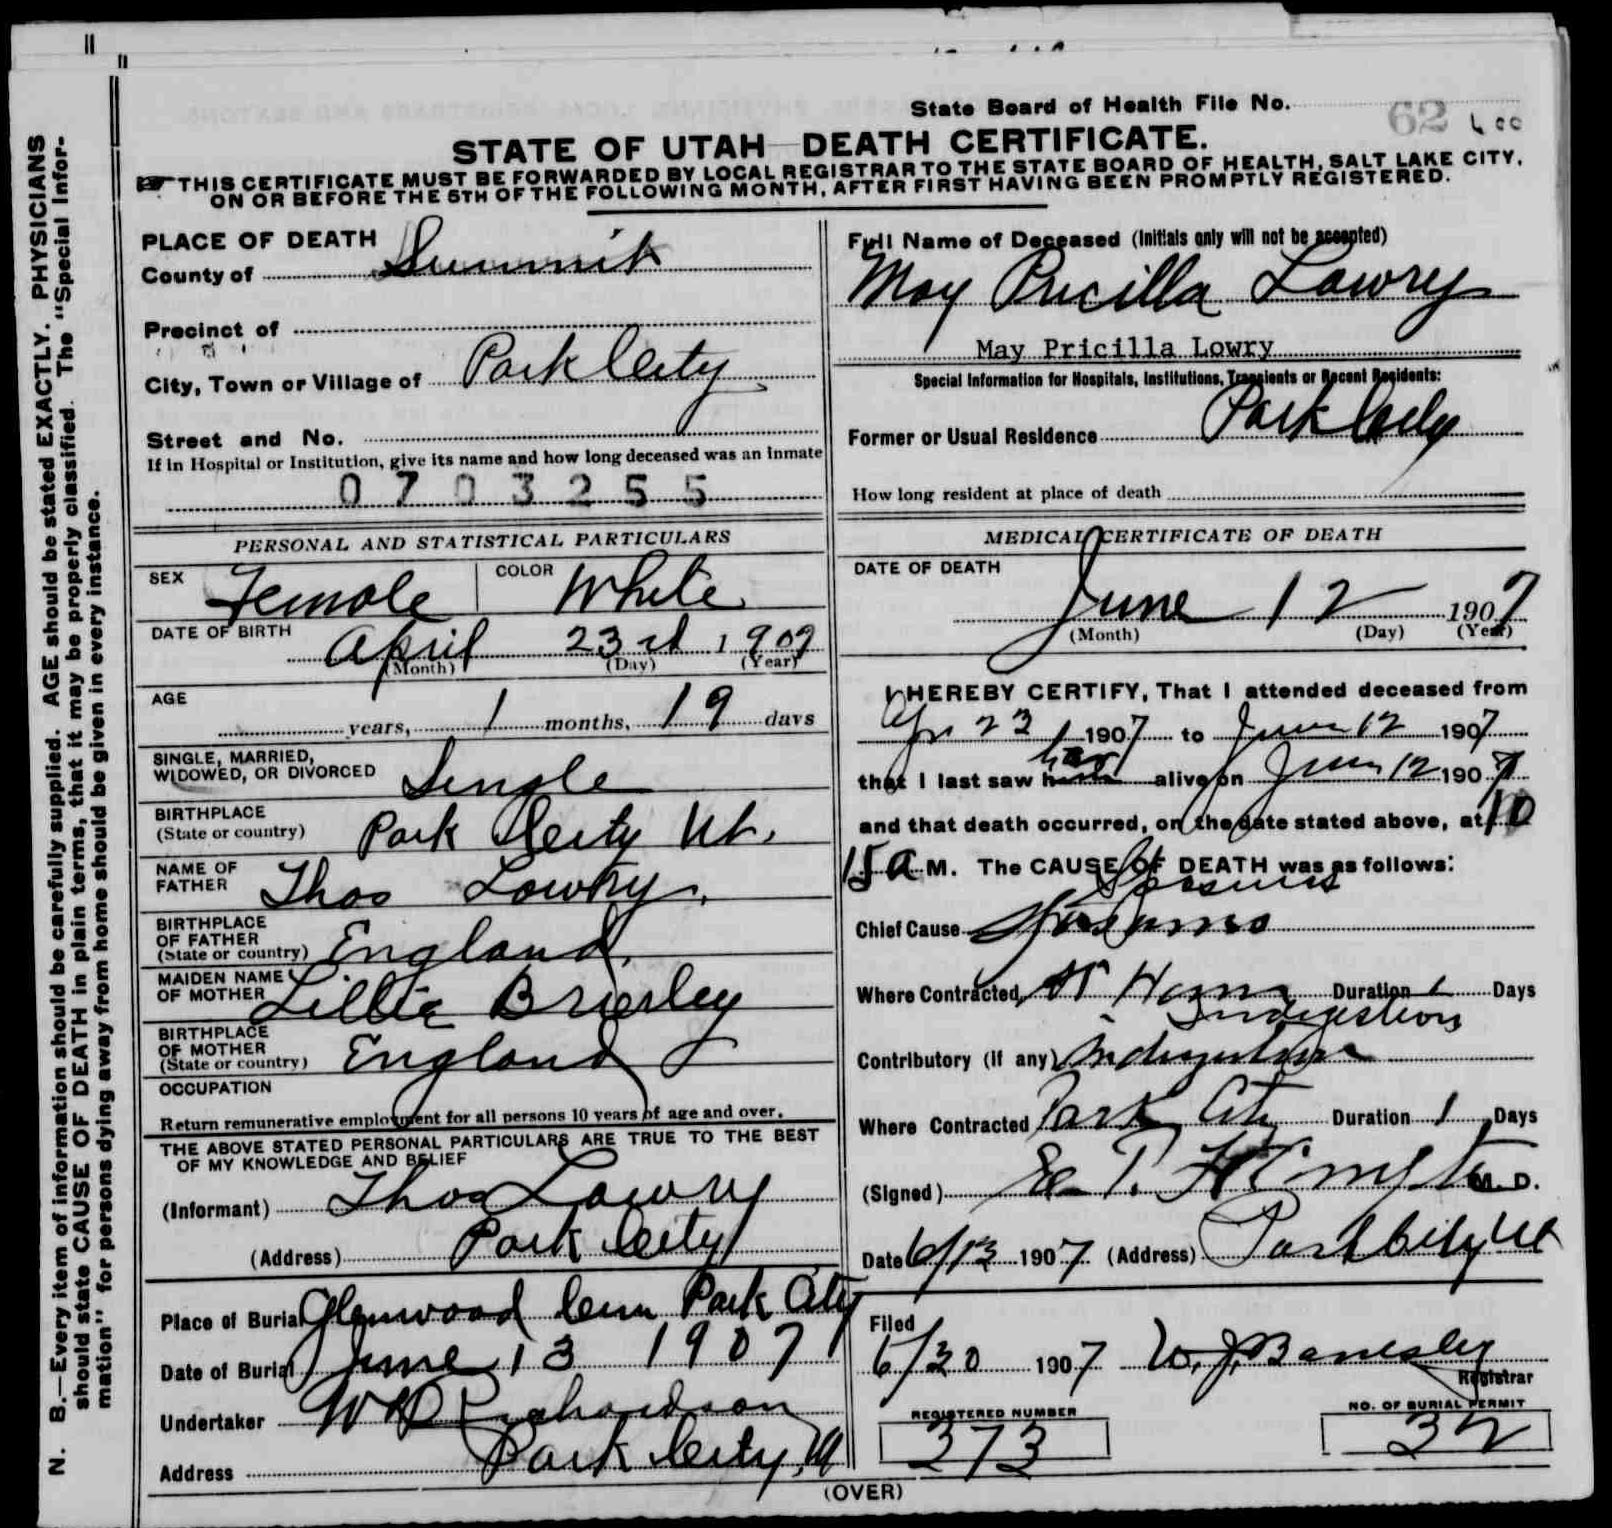 State Board of Health File No. 62
STATE OF UTAH—DEATH CERTIFICATE.
THIS CERTIFICATE MUST BE FORWARDED BY LOCAL REGISTRAR TO THE STATE BOARD OF HEALTH, SALT LAKE CITY,
ON OR BEFORE THE 5TH OF THE FOLLOWING MONTH, AFTER FIRST HAVING BEEN PROMPTLY REGISTERED.
PLACE OF DEATH
County of Summit
Precinct of
City, Town or Village of Park City
Street and No.
If in Hospital or Institution, give its name and how long deceased was an inmate
0703255
PERSONAL AND STATISTICAL PARTICULARS
SEX Female COLOR White
DATE OF BIRTH April 23rd 1907
(Month) (Day) (Year)
AGE
years, 1 months, 19 days
SINGLE, MARRIED,
WIDOWED, OR DIVORCED Single
BIRTHPLACE
(State or country) Park City Ut.
NAME OF
FATHER Thos Lowry.
BIRTHPLACE
OF FATHER
(State or country) England.
MAIDEN NAME
OF MOTHER Lillie Brierley
BIRTHPLACE
OF MOTHER
(State or country) England
OCCUPATION
Return remunerative employment for all persons 10 years of age and over.
THE ABOVE STATED PERSONAL PARTICULARS ARE TRUE TO THE BEST
OF MY KNOWLEDGE AND BELIEF
(Informant) Thos Lowry
(Address) Park City
Place of Burial Glenwood Cem Park City
Date of Burial June 13 1907
Undertaker W D Richardson
Address Park City, Ut
Full Name of Deceased (Initials only will not be accepted)
May Pricilla Lowry
May Pricilla Lowry
Special Information for Hospitals, Institutions, Transients or Recent Residents:
Former or Usual Residence Park City
How long resident at place of death
MEDICAL CERTIFICATE OF DEATH
DATE OF DEATH
June 12 1907
(Month) (Day) (Year)
I HEREBY CERTIFY, That I attended deceased from
Apr 23 1907 to June 12 1907
that I last saw her alive on June 12 1907
and that death occurred, on the date stated above, at 10
15 a M. The CAUSE OF DEATH was as follows:
Spasms
Chief Cause Spasms
Where Contracted At Home Duration 1 Days
Indigestion
Contributory (if any) Indigestion
Where Contracted Park City Duration 1 Days
(Signed) M. D.
Date 6/13 1907 (Address) Park City Ut
Filed
6/30 1907 W. J. Bardsley
Registrar
REGISTERED NUMBER
373
NO. OF BURIAL PERMIT
32
(OVER)
N. B.—Every item of information should be carefully supplied. AGE should be stated EXACTLY. PHYSICIANS
should state CAUSE OF DEATH in plain terms, that it may be properly classified. The "Special Infor-
mation" for persons dying away from home should be given in every instance.